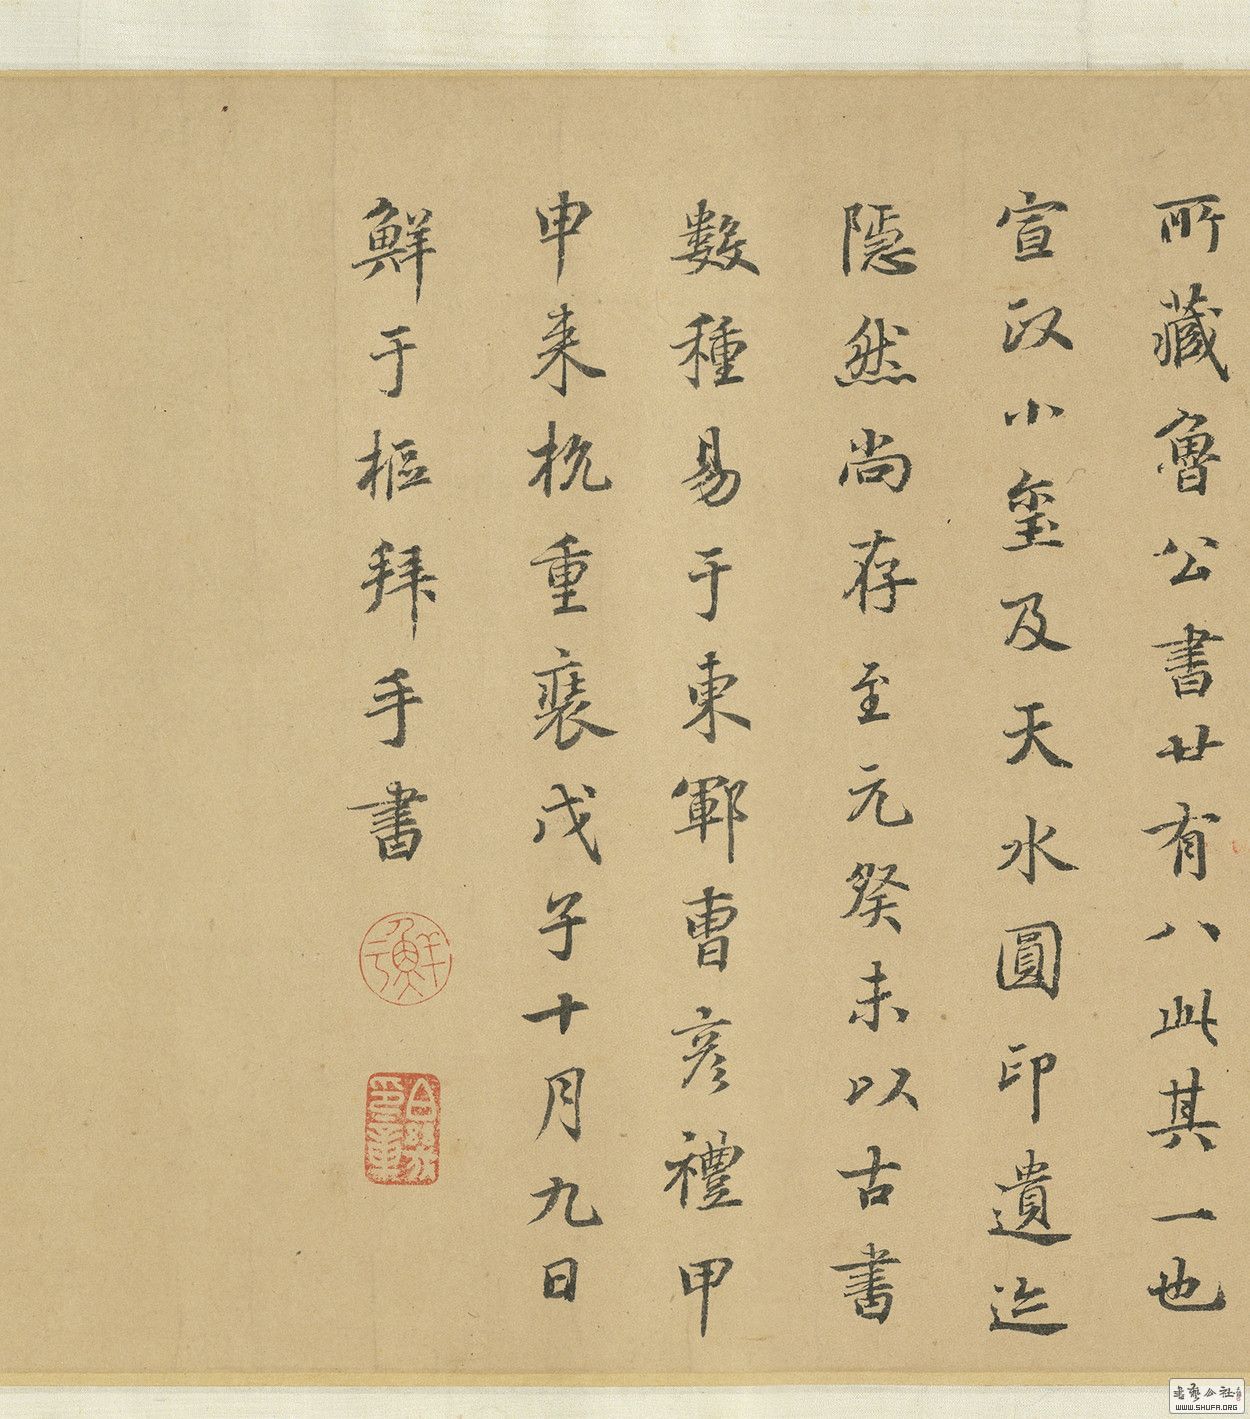 所藏魯公書廿有八此其一也
宣政小璽及天水圓印遺迹
隱然尚存至元癸未以古書
數種易于東鄆曹彦禮甲
申来杭重裝戊子十月九日
鮮于樞拜手書
鮮于
書藝公社
WWW.SHUFA.ORG